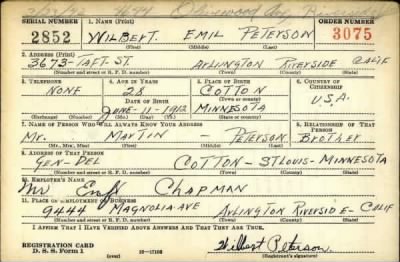 SERIAL NUMBER 1. NAME (Print) ORDER NUMBER
2852 WILBERT. EMIL PETERSON 3075
(First) (Middle) (Last)
2. ADDRESS (Print)
3673-TAFT-ST. ARLINGTON RIVERSIDE CALIF
(Number and street or R. F. D. number) (Town) (County) (State)
3. TELEPHONE 4. AGE IN YEARS 5. PLACE OF BIRTH 6. COUNTRY OF CITIZENSHIP
NONE 28 COTTON
DATE OF BIRTH (Town or county)
JUNE-11-1912 MINNESOTA U.S.A.
(Exchange) (Number) (Mo.) (Day) (Yr.) (State or country)
7. NAME OF PERSON WHO WILL ALWAYS KNOW YOUR ADDRESS 8. RELATIONSHIP OF THAT PERSON
Mr. MARTIN - PETERSON BROTHER
(Mr., Mrs., Miss) (First) (Middle) (Last)
9. ADDRESS OF THAT PERSON
GEN-DEL COTTON-STLOUIS-MINNESOTA
(Number and street or R. F. D. number) (Town) (County) (State)
10. EMPLOYER'S NAME
Mr CHAPMAN
11. PLACE OF EMPLOYMENT OR BUSINESS
9444 MAGNOLIA-AVE ARLINGTON RIVERSIDE-CALIF
(Number and street or R. F. D. number) (Town) (County) (State)
I AFFIRM THAT I HAVE VERIFIED ABOVE ANSWERS AND THAT THEY ARE TRUE.
REGISTRATION CARD
D. S. S. Form 1 Wilbert Peterson
(Registrant's signature)